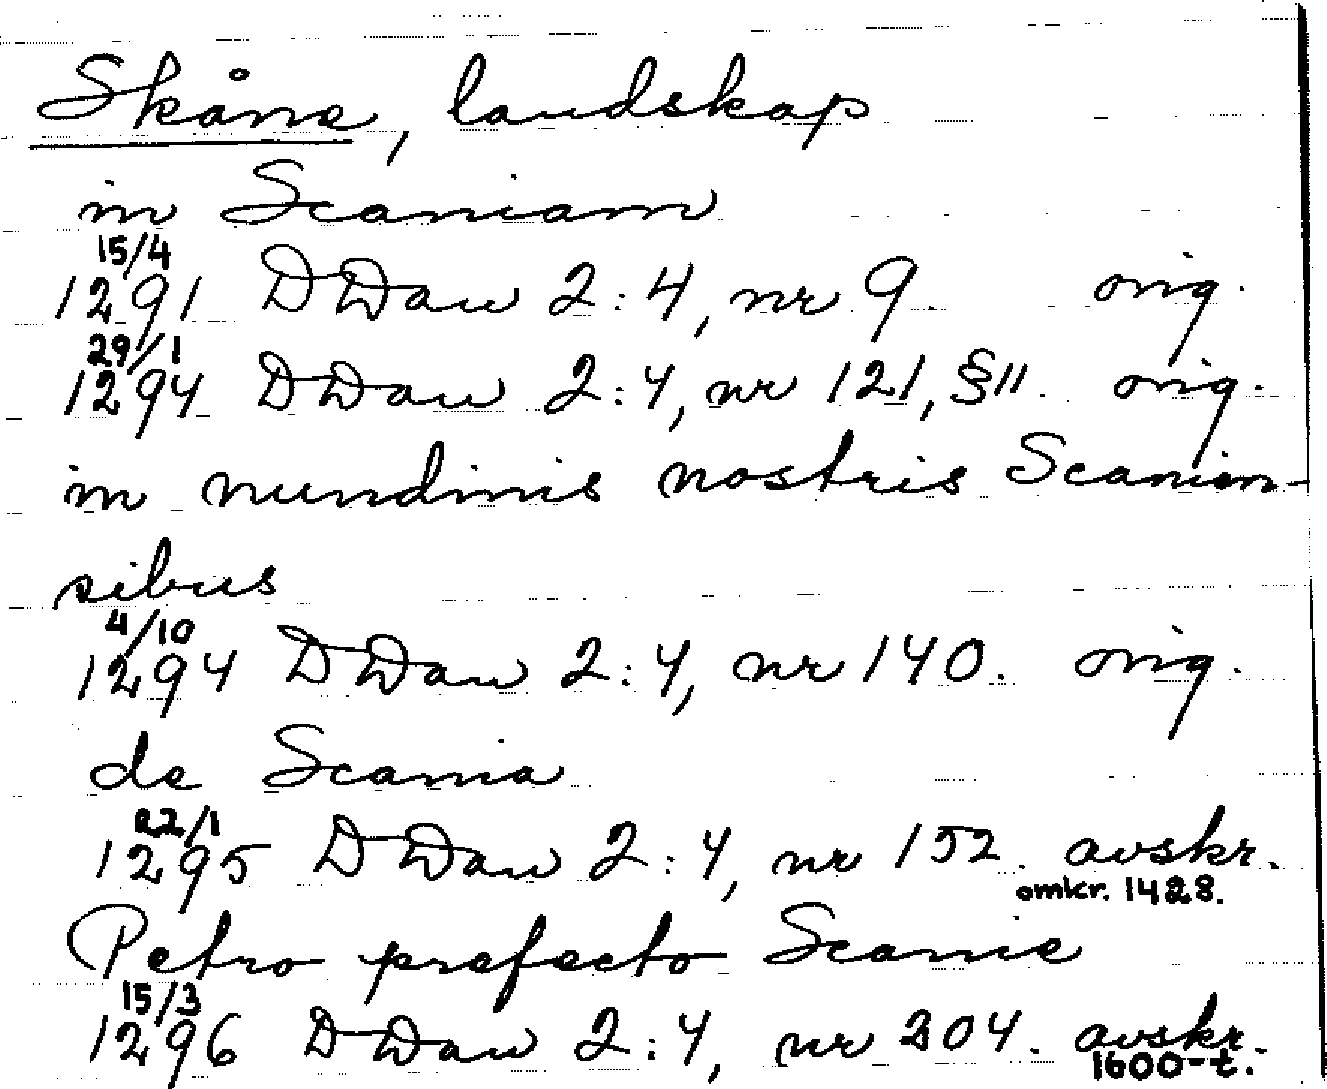 Skåne, landskap
in Scaniam
15/4
1291 DDan 2:4, nr 9. orig.
29/1
1294 DDan 2:4, nr 121, §11. orig.
in nundinis nostris Scanien-
sibus
4/10
1294 DDan 2:4, nr 140. orig.
de Scania
22/1
1295 DDan 2:4, nr 152. avskr.
omkr. 1428.
Petro prefecto Scanie
15/3
1296 DDan 2:4, nr 204. avskr.
1600-t.